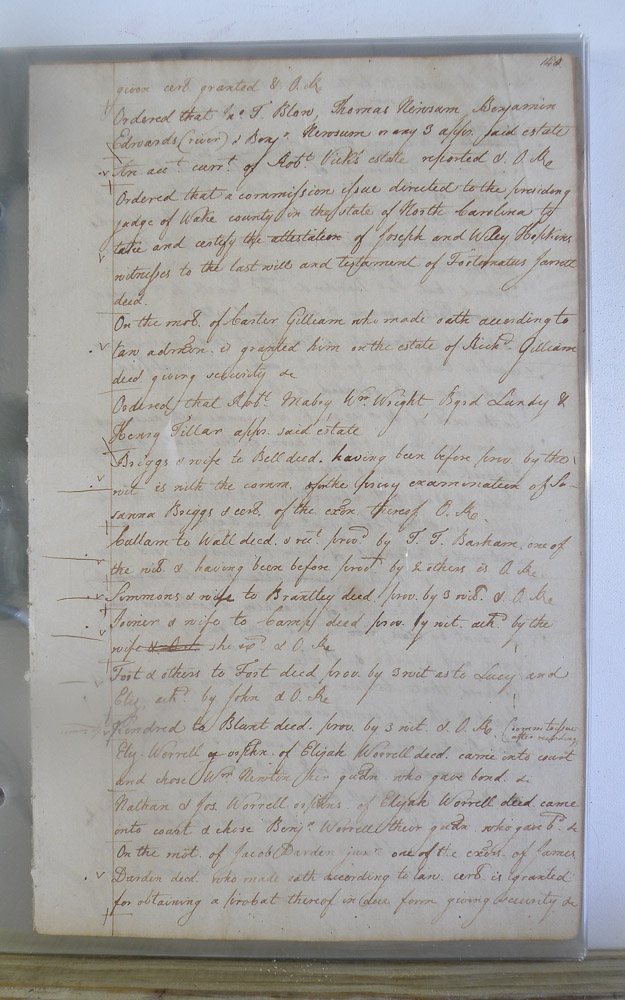 given cert granted & O. Re
Ordered that T. Blow, Thomas Newsum Benjamin
Edwards (river) & Benjn. Newsum or any 3 appr. said estate
An acct. currt. of Robt. Vick's estate reported & O. Re
Ordered that a commission issue directed to the presiding
judge of Wake county in the state of North Carolina to
take and certify the attestation of Joseph and Wiley Hopkins
witnesses to the last will and testament of Fortunatus Jarrett
deed.
On the mot. of Carter Gilliam who made oath according to
law admon. is granted him on the estate of Richd. Gilliam
decd. giving security &c
Ordered that Robt. Mabry Wm. Wright Byrd Lundy &
Henry Tillar appr. said estate
Briggs & wife to Bell deed. having been before prov. by the
wit. is with the comm. for the privy examination of Su-
sanna Briggs & cert. of the exon. thereof O. Re.
Cullam to Wall deed. & rect. provd. by T. T. Barham. one of
the wit. & having been before provd. by 2 others is O. Re
Simmons & wife to Brantley deed. prov. by 3 wit. & O. Re
Joiner & wife to Camp deed prov. by wit. ackd. by the
wife & O. Re. she & O. Re
Fort & others to Fort deed prov. by 3 wit as to Lucy and
Ely ackd. by John & O. Re
Kindred to Blunt deed. prov. by 3 wit. & O. Re. (comm to issue
after recording)
Ely Worrell orphn. of Elijah Worrell decd. came into court
and chose Wm Newton her gudn who gave bond. &c
Nathan & Jos. Worrell orphans. of Elijah Worrell decd. came
into court & chose Benjn. Worrell their gudn. who gave b. &c
On the mot. of Jacob Darden junr. one of the exors. of James
Darden decd. who made oath according to law. cert. is granted
for obtaining a probat thereof in due form giving security &c